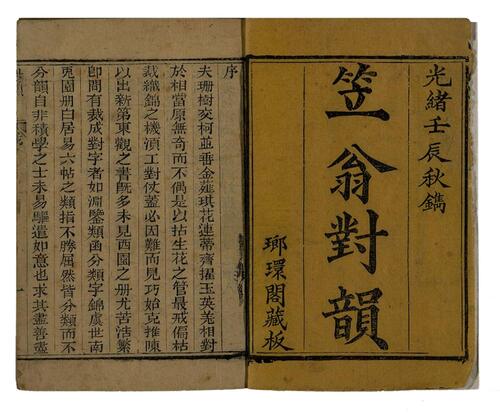 光緒壬辰秋鐫
笠翁對韻
瑯環閣藏板
序
夫珊樹交柯並番金薤琪花連蒂齊擢玉英羌相對
於相當原無奇而不偶是以拈生花之管最戒偏枯
裁織錦之機湏工對仗蓋必因難而見巧始克推陳
以出新第東觀之書既多未見西園之册尤苦浩繁
卽間有裁成對字者如淵鑒類函分類字錦虞世南
兎園册白居易六帖之類指不勝屈然皆分類而不
分韻自非積學之士未易驅遣如意也求其盡善盡